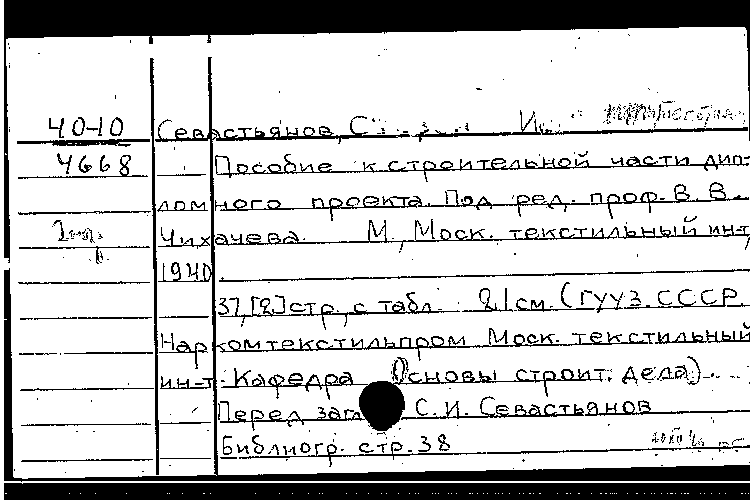 40-10 Севастьянов, С
4668 Пособие к строительной части дип-
ломного проекта. Под ред. проф. В. В.
Чихачева. М., Моск. текстильный ин-т,
1940.
37,[2]стр., с табл. 21 см. (ГУУЗ. СССР.
Наркомтекстильпром Моск. текстильный
ин-т. Кафедра Основы строит. дела).
Перед заг С. И. Севастьянов
Библиогр. стр. 38